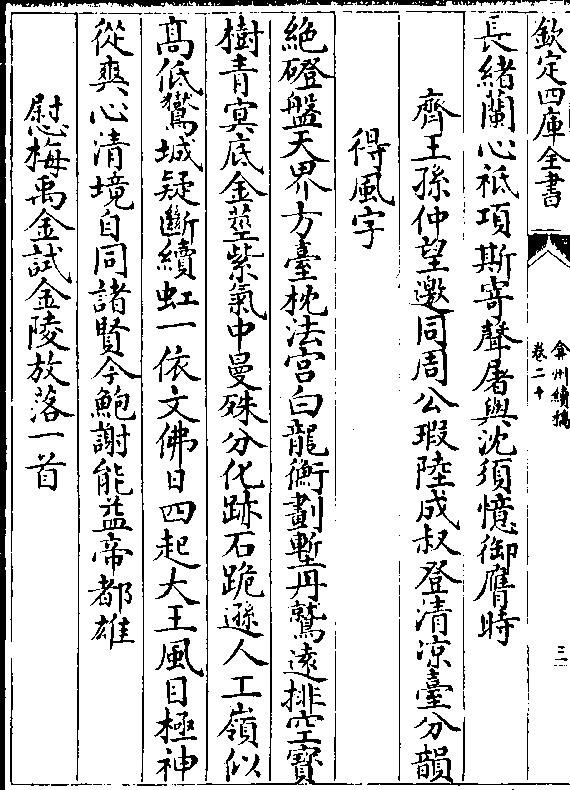 欽定四庫全書
弇州續稿
卷二十
三
長緒蘭心祗項斯寄聲屠與沈須憶御膺時
齊王孫仲望邀同周公瑕陸成叔登清凉臺分韻
得風字
絶磴盤天界方臺枕法宫白龍衡劃塹丹鷲遠排空寶
樹青冥底金莖紫氣中曼殊分化跡石跪遜人工嶺似
髙低鷲城疑斷續虹一依文佛日四起大王風目極神
從爽心清境自同諸賢今鮑謝能益帝都雄
慰梅禹金試金陵放落一首